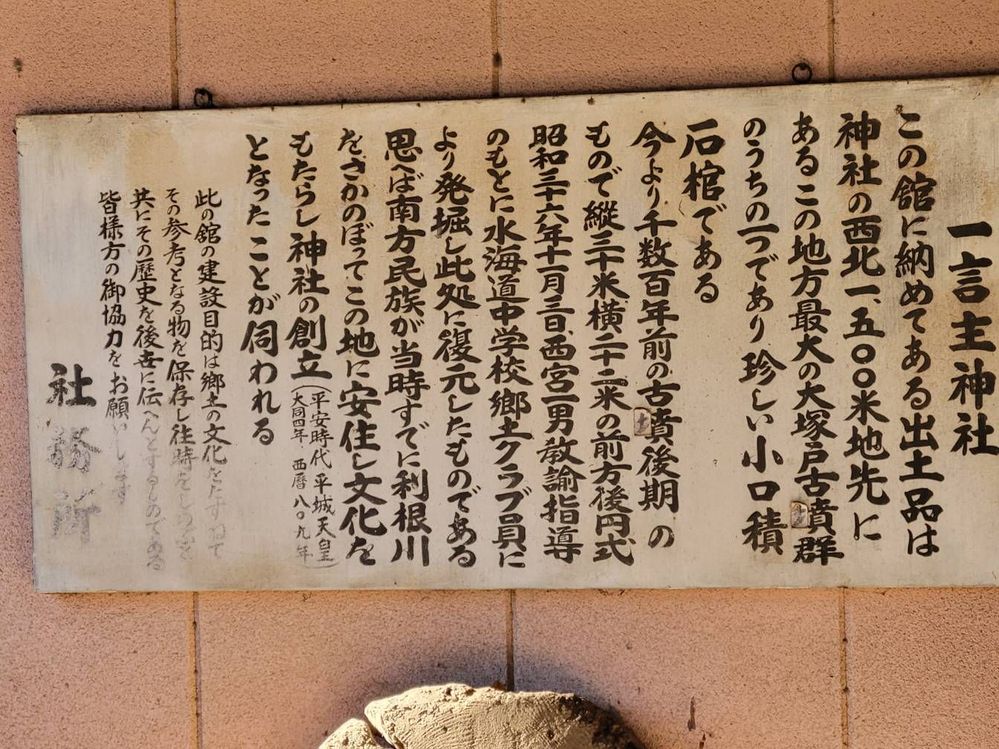 一言主神社
この館に納めてある出土品は
神社の西北一、五〇〇米地先に
あるこの地方最大の大塚戸古墳群
のうちの一つであり珍しい小口積
石棺である
今より千数百年前の古墳後期の
もので縦三十米横二十二米の前方後円式
昭和三十六年十一月三日、西宮一男教諭指導
のもとに水海道中学校郷土クラブ員に
より発掘し此処に復元したものである
思へば南方民族が当時すでに利根川
をさかのぼってこの地に安住し文化を
もたらし神社の創立(平安時代平城天皇 大同四年.西暦八〇九年)
となったことが伺われる
此の館の建設目的は郷土の文化をたずねて
その参考となる物を保存し往時をしのぶと
共にその歴史を後世に伝へんとするものである
皆様方の御協力をお願いします
社務所